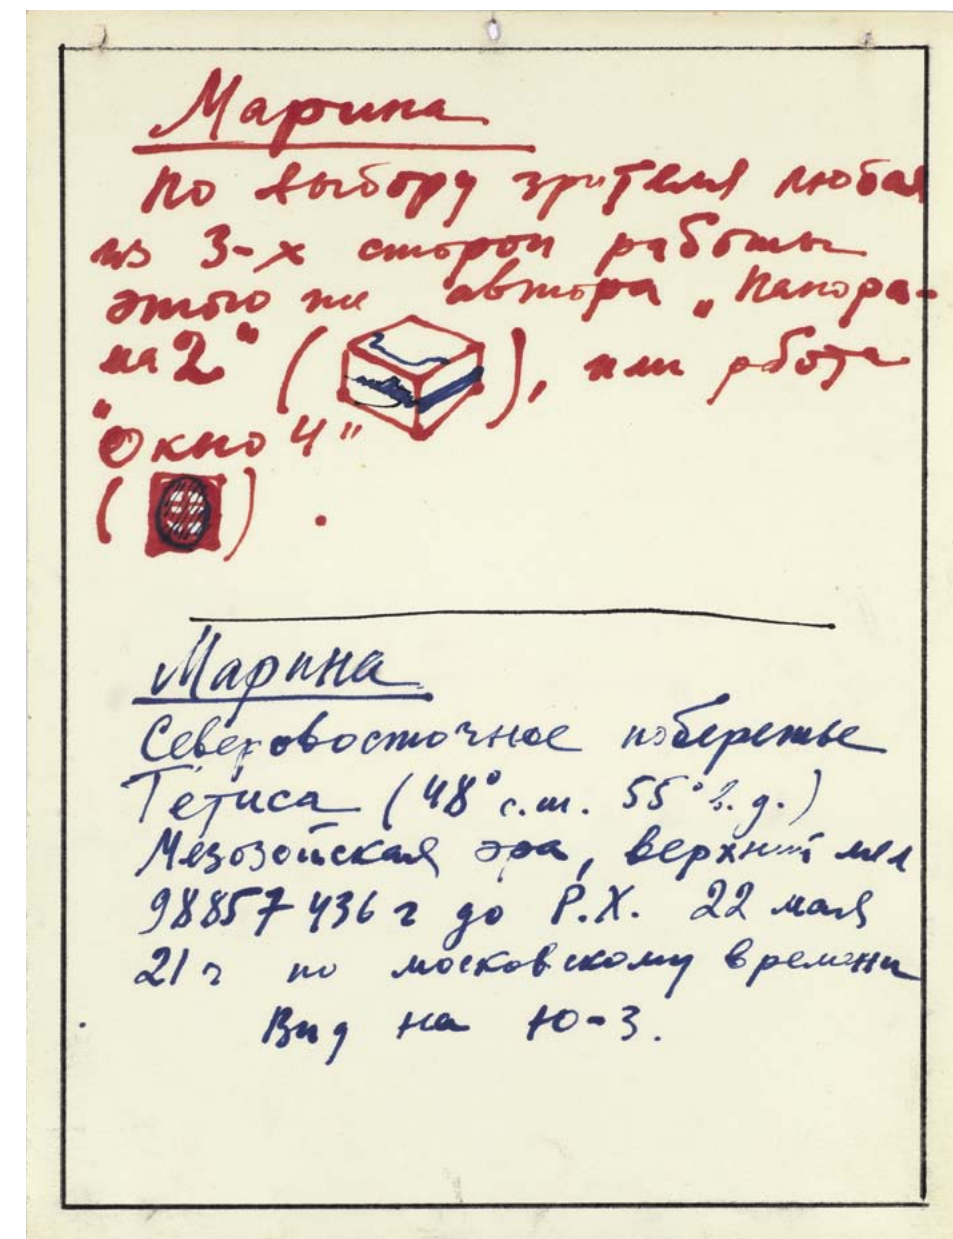 Марина
По выбору зрителя любая
из 3-х сторон работы
этого же автора „Панора-
ма 2" ( ), или работа
"Окно 4"
( ) .
Марина
Северовосточное побережье
Тетиса (48° с.ш. 55° в.д.)
Мезозойская эра, верхний мел
98857436 г до Р.Х. 22 мая
21 ч по московскому времени
Вид на Ю-З.